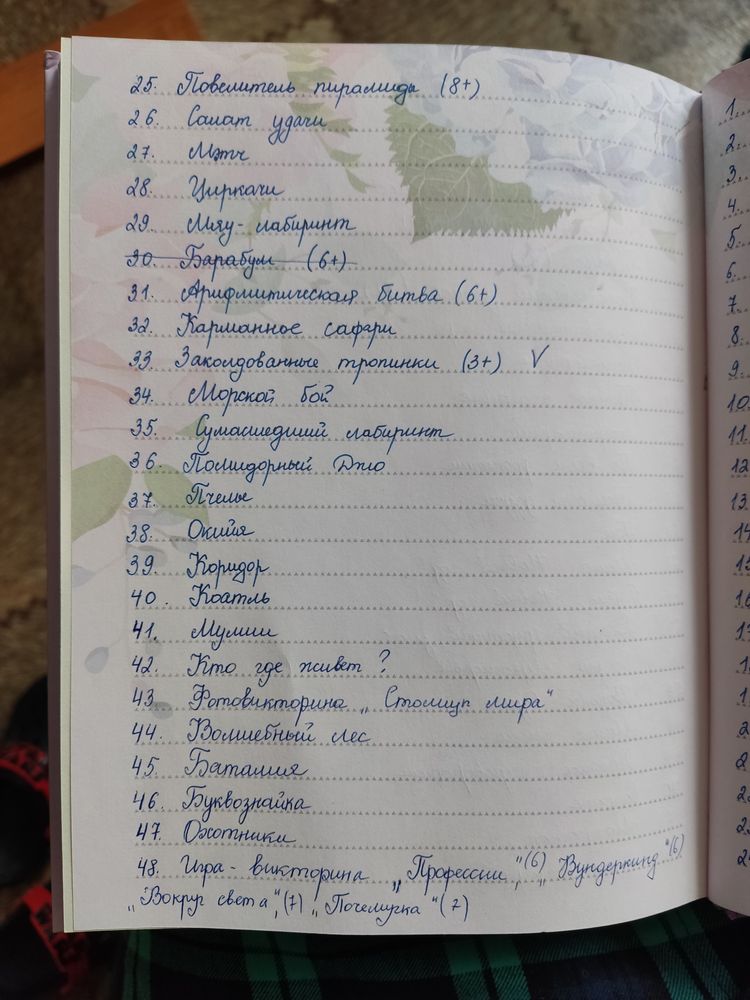 25. Повелитель пирамиды (8+)
26. Салат удачи
27. Мэтч
28. Циркачи
29. Мяу-лабиринт
30. Барабум (6+)
31. Арифмитическая битва (6+)
32. Карманное сафари
33. Заколдованные тропинки (3+) V
34. Морской бой
35. Сумасшедший лабиринт
36. Помидорный Джо
37. Пчелы
38. Окийя
39. Коридор
40. Коатль
41. Мумии
42. Кто где живет?
43. Фотовикторина „Столицы мира“
44. Волшебный лес
45. Баталия
46. Буквознайка
47. Охотники
48. Игра-викторина „Профессии“, (6) „Вундеркинд“ (6)
„Вокруг света“, (7) „Почемучка“ (7)
1.
2.
3.
4.
5.
6.
7.
8.
9.
10.
11.
12
13.
14
15
16
17